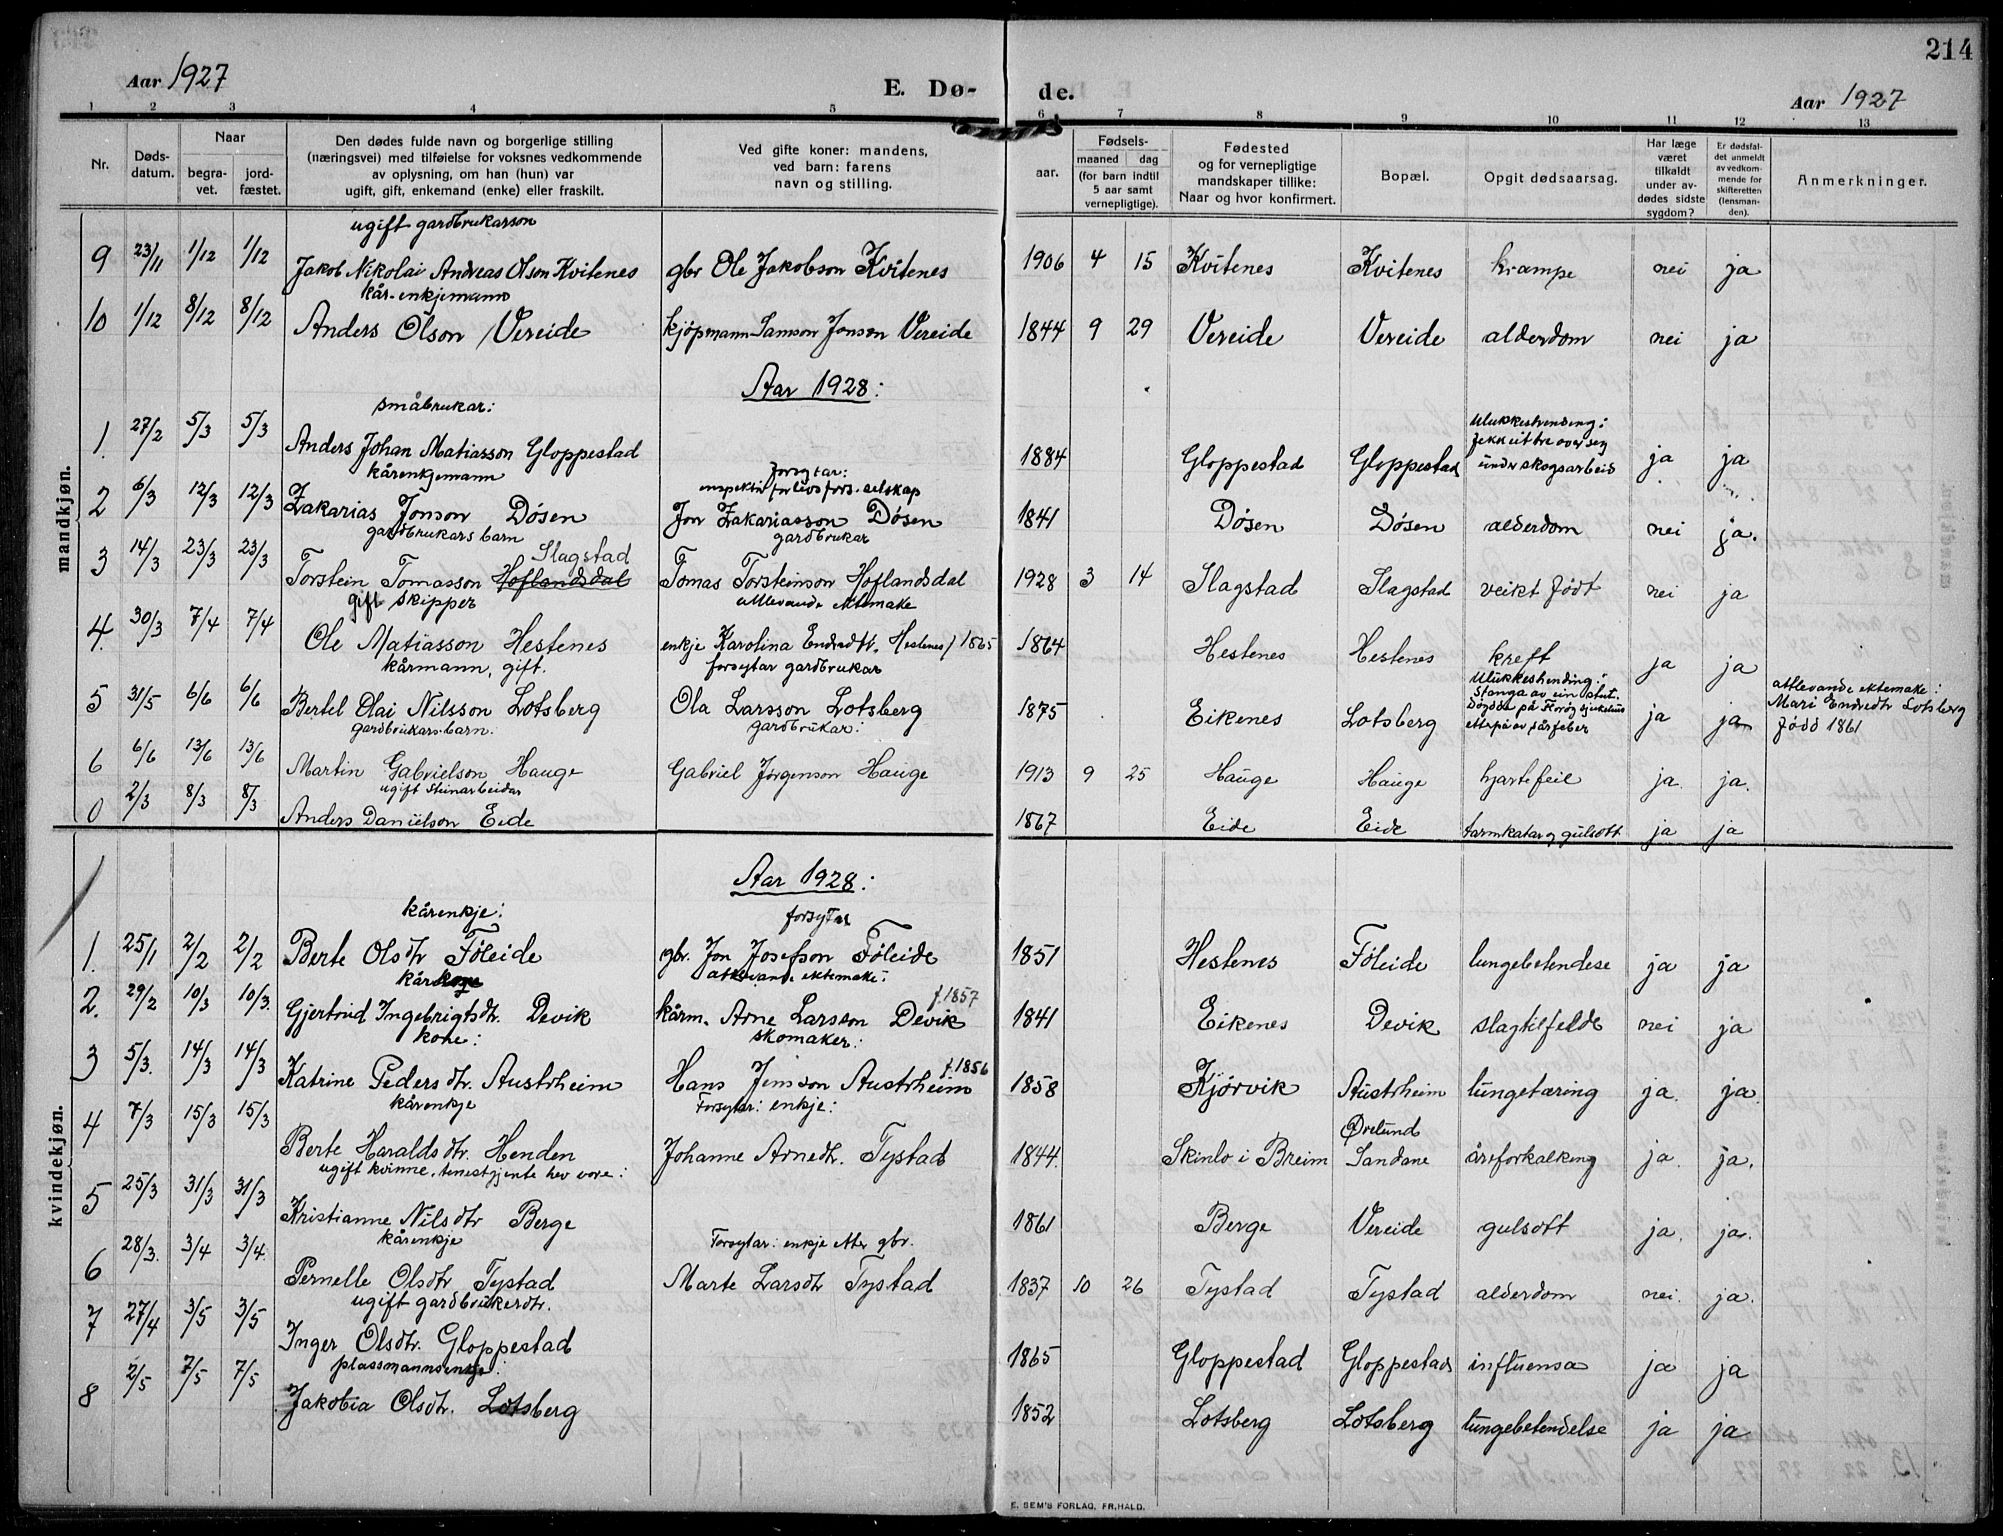 214
Aar 1927 E. Dø- de. Aar 1927
1 2 3 4 5 6 7 8 9 10 11 12 13
Nr. Døds-datum. Naar begra-vet. jord-fæstet. Den dødes fulde navn og borgerlige stilling (næringsvei) med tilføielse for voksnes vedkommende av oplysning, om han (hun) var ugift, gift, enkemand (enke) eller fraskilt. Ved gifte koner: mandens, ved barn: farens navn og stilling. Fødsels- aar. maaned dag (for barn indtil 5 aar samt vernepligtige). Fødested og for vernepligtige mandskaper tillike: Naar og hvor konfirmert. Bopæl. Opgit dødsaarsag. Har læge været tilkaldt under av-dødes sidste sygdom? Er dødsfal-det anmeldt av vedkom-mende for skifteretten (lensman-den). Anmerkninger.
mandkjøn.
ugift gardbrukarson
9 23/11 1/12 1/12 Jakob Nikolai Andreas Olson Kvitenes gbr Ole Jakobson Kvitenes 1906 4 15 Kvitenes Kvitenes krampe nei ja
kår-enkjemann
10 1/12 8/12 8/12 Anders Olson Vereide kjöpmann Samson Jonson Vereide 1844 9 29 Vereide Vereide alderdom nei ja
Aar 1928:
småbrukar: Ulukkeshending:
fekk eit tre over seg
1. 27/2 5/3 5/3 Anders Johan Matiasson Gloppestad 1884 Gloppestad Gloppestad under skogsarbeid ja ja
kårenkjemann forsytar:
inspektør for livsfors. selskap
2 6/3 12/3 12/3 Zakarias Jonson Døsen Jon Zakariasson Døsen 1841 Døsen Døsen alderdom nei ja.
gardbrukars barn gardbrukar
Slagstad
3 14/3 23/3 23/3 Torstein Tomasson Hoflandsdal Tomas Torsteinson Hoflandsdal 1928 3 14 Slagstad Slagstad veikt født nei ja
gift skipper attlevande ektemake
4. 30/3 7/4 7/4 Ole Matiasson Hestenes enkje Karolina Endredtr. Hestenes f 1865 1864 Hestenes Hestenes kreft ja ja
kårmann, gift. forsytar gardbrukar Ulukkeshending: attlevande ektemake:
Stanga av ein stut.
5 31/5 6/6 6/6 Bertel Olai Nilsson Lotsberg Ola Larsson Lotsberg 1875 Eikenes Lotsberg Døydde på Florø sjukehus ja ja Mari Endredtr Lotsberg
etterpå av sårfeber født 1861
gardbrukars barn. gardbrukar:
6 6/6 13/6 13/6 Martin Gabrielson Hauge Gabriel Jørgenson Hauge 1913 9 25 Hauge Hauge hjartefeil ja. ja.
ugift steinarbeidar
0 2/3 8/3 8/3 Anders Danielson Eide 1867 Eide Eide tarmkatar og gulsott ja ja
kvindekjøn.
Aar 1928:
kårenkje: forsytar
1. 25/1 2/2 2/2 Berte Olsdtr Føleide gbr. Jon Josefson Føleide 1851 Hestenes Føleide lungebetendese ja ja
kårkone attlevande ektemake:
2. 29/2 10/3 10/3. Gjertrud Ingebrigtsdtr. Devik kårm. Arne Larsson Devik f. 1857 1841 Eikenes Devik slagtilfelde nei ja
kone: skomaker:
3 5/3. 14/3 14/3 Katrine Pedersdtr. Austrheim Hans Jensson Austrheim f. 1856 1858 Kjørvik Austrheim lungetæring ja. ja.
kårenkje Forsytar: enkje: Ørelund
4 7/3 15/3 15/3 Berte Haraldsdtr. Henden Johanne Arnedtr. Tystad 1844. Skinlo i Breim Sandane åreforkalking ja. ja.
ugift kvinne, tenestgjente hev vore:
5 25/3 31/3 31/3 Kristianne Nilsdtr Berge 1861 Berge Vereide gulsott ja. ja.
kårenkje Forsytar: enkje etter gbr.
6 28/3. 3/4 3/4. Pernelle Olsdtr Tystad Marte Larsdtr Tystad 1837 10 26 Tystad Tystad alderdom nei. ja.
ugift gardbrukerdtr.
7 27/4 3/5 3/5 Inger Olsdtr. Gloppestad 1865 Gloppestad Gloppestad influensa ja ja
plassmannsenkje:
8 2/5 7/5 7/5 Jakobia Olsdtr. Lotsberg 1852 Lotsberg Lotsberg lungebetendelse ja ja
E. SEM'S FORLAG, FR.HALD.